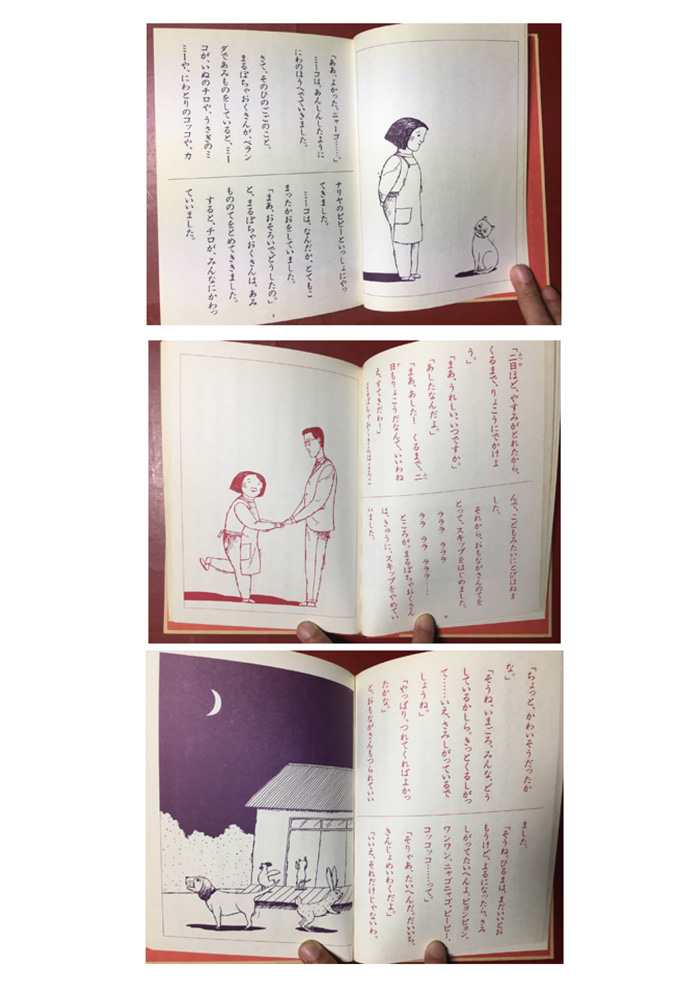 「ああ、よかった。ニャーゴ……。」
ミーコは、あんしんしたように
にわのほうへでていきました。
さて、そのひのごごのこと。
まるぽちゃおくさんが、ベラン
ダであみものをしていると、ミー
コが、いぬのチロや、うさぎのミ
ミーや、にわとりのコッコや、カ
ナリヤのピピーといっしょにやっ
てきました。
ミーコは、なんだか、とてもこ
まったかおをしていました。
「まあ、おそろいでどうしたの。」
と、まるぽちゃおくさんは、あみ
もののてをとめてききました。
すると、チロが、みんなにかわっ
ていいました。
9
「二日ほど、やすみがとれたから、
くるまで、りょこうにでかけよ
う。」
「まあ、うれしい、いつですか。」
「あしたなんだよ。」
「まあ、あした! くるまで、二
日もりょこうだなんて、いいわね
え、すてきだわ!」
と、まるぽちゃおくさんはよろこ
んで、こどもみたいにとびはねま
した。
それから、おもながさんのてを
とって、スキップをはじめました。
ララララ ラララ
ララ ララ ラララ……
ところが、まるぽちゃおくさん
は、きゅうに、スキップをやめてい
いました。
「ちょっと、かわいそうだったか
な。」
「そうね、いまごろ、みんな、どう
しているかしら。きっとくるしがっ
て……いえ、さみしがっているで
しょうね。」
「やっぱり、つれてくればよかっ
たかな。」
と、おもながさんもつられていい
ました。
「そうね、ひるまは、まだいいとお
もうけど、よるになったら、さみ
しがってたいへんよ。ピョンピョン、
ワンワン、ニャゴニャゴ、ピーピー、
コッコッコ……って。」
「そりゃあ、たいへんだ。だいいち、
きんじょめいわくだよ。」
「いいえ、それだけじゃないわ。